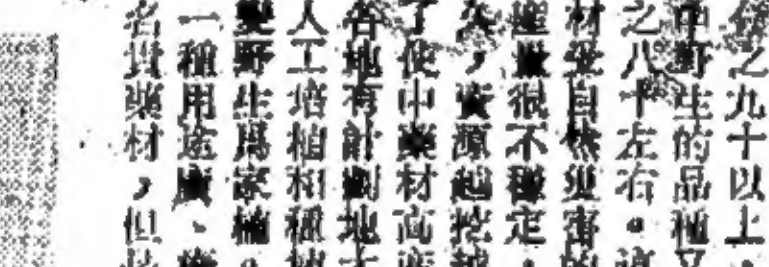 之九十以上，
中野生的品種又
之八十左右。這
材受自然災害的
產量很不穩定，
資源越挖越
了使中藥材高產
各地有計劃地大
人工培植和種植
變野生爲家植。
一種用途廣、
名貴藥材，但